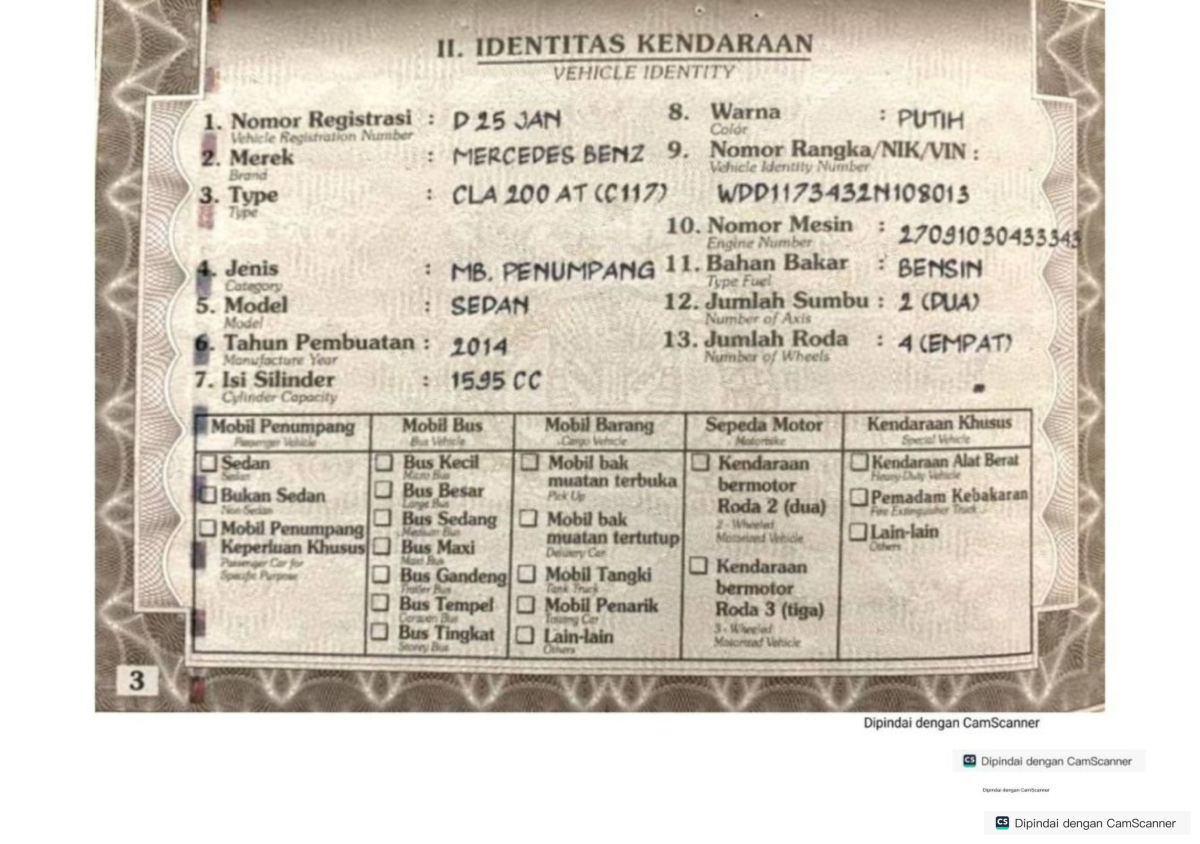 II. IDENTITAS KENDARAAN
VEHICLE IDENTITY
1. Nomor Registrasi : D 25 JAN
Vehicle Registration Number
2. Merek : MERCEDES BENZ
Brand
3. Type : CLA 200 AT (C117)
Type
4. Jenis : MB. PENUMPANG
Category
5. Model : SEDAN
Model
6. Tahun Pembuatan : 2014
Manufacture Year
7. Isi Silinder : 1595 CC
Cylinder Capacity
8. Warna : PUTIH
Color
9. Nomor Rangka/NIK/VIN :
Vehicle Identity Number
WDD1173432N108013
10. Nomor Mesin : 27091030433343
Engine Number
11. Bahan Bakar : BENSIN
Type Fuel
12. Jumlah Sumbu : 2 (DUA)
Number of Axis
13. Jumlah Roda : 4 (EMPAT)
Number of Wheels
Mobil Penumpang
Passenger Vehicle
Sedan
Sedan
Bukan Sedan
Non Sedan
Mobil Penumpang
Keperluan Khusus
Passenger Car for
Specific Purpose
Mobil Bus
Bus Vehicle
Bus Kecil
Micro Bus
Bus Besar
Large Bus
Bus Sedang
Medium Bus
Bus Maxi
Maxi Bus
Bus Gandeng
Trailer Bus
Bus Tempel
Caravan Bus
Bus Tingkat
Storey Bus
Mobil Barang
Cargo Vehicle
Mobil bak
muatan terbuka
Pick Up
Mobil bak
muatan tertutup
Delivery Car
Mobil Tangki
Tank Truck
Mobil Penarik
Towing Car
Lain-lain
Others
Sepeda Motor
Motorbike
Kendaraan
bermotor
Roda 2 (dua)
2 - Wheeled
Motorised Vehicle
Kendaraan
bermotor
Roda 3 (tiga)
3 - Wheeled
Motorised Vehicle
Kendaraan Khusus
Special Vehicle
Kendaraan Alat Berat
Heavy Duty Vehicle
Pemadam Kebakaran
Fire Extinguisher Truck
Lain-lain
Others
3
Dipindai dengan CamScanner
CS Dipindai dengan CamScanner
Dipindai dengan CamScanner
CS Dipindai dengan CamScanner